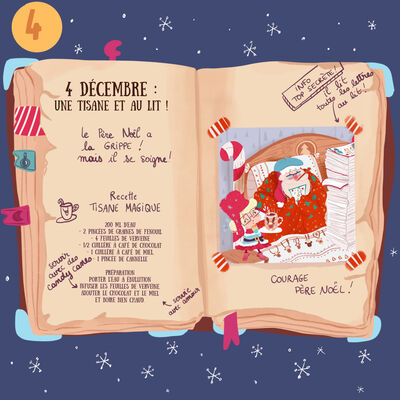 4
4 DÉCEMBRE :
UNE TISANE ET AU LIT !
le Père Noël a
la GRIPPE !
mais il se soigne !
Recette
TISANE MAGIQUE
200 ML D'EAU
- 2 PINCÉES DE GRAINES DE FENOUIL
- 4 FEUILLES DE VERVEINE
- 1/2 CUILLÈRE À CAFÉ DE CHOCOLAT
- 1 CUILLÈRE À CAFÉ DE MIEL
- 1 PINCÉE DE CANNELLE
PRÉPARATION
PORTER L'EAU À ÉBULLITION
INFUSER LES FEUILLES DE VERVEINE
AJOUTER LE CHOCOLAT ET LE MIEL
ET BOIRE BIEN CHAUD
servir
avec des
candy canes
servir
avec amour
INFO
TOP SECRÈTE !
il lit
toutes les lettres
au lit !
COURAGE
PÈRE NOËL !